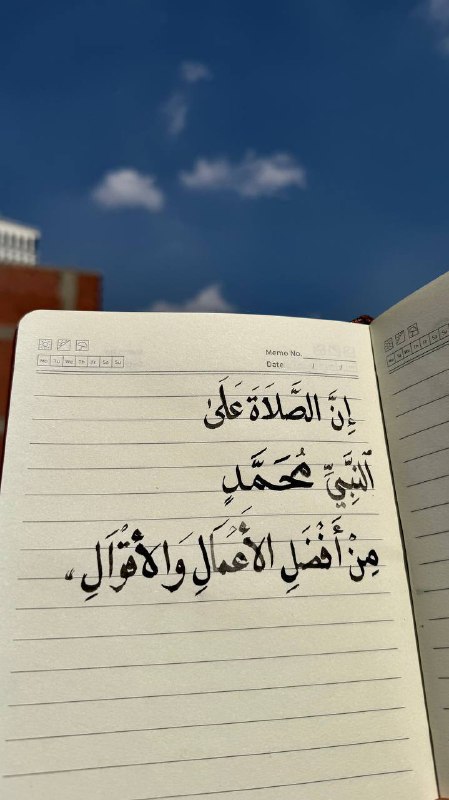 Memo No.
Mo Tu We Th Fr Sa Su
Date / /
إِنَّ الصَّلَاةَ عَلَىٰ
ٱلنَّبِيِّ مُحَمَّدٍ
مِنْ أَفْضَلِ الأَعْمَالِ وَالأَقْوَالِ